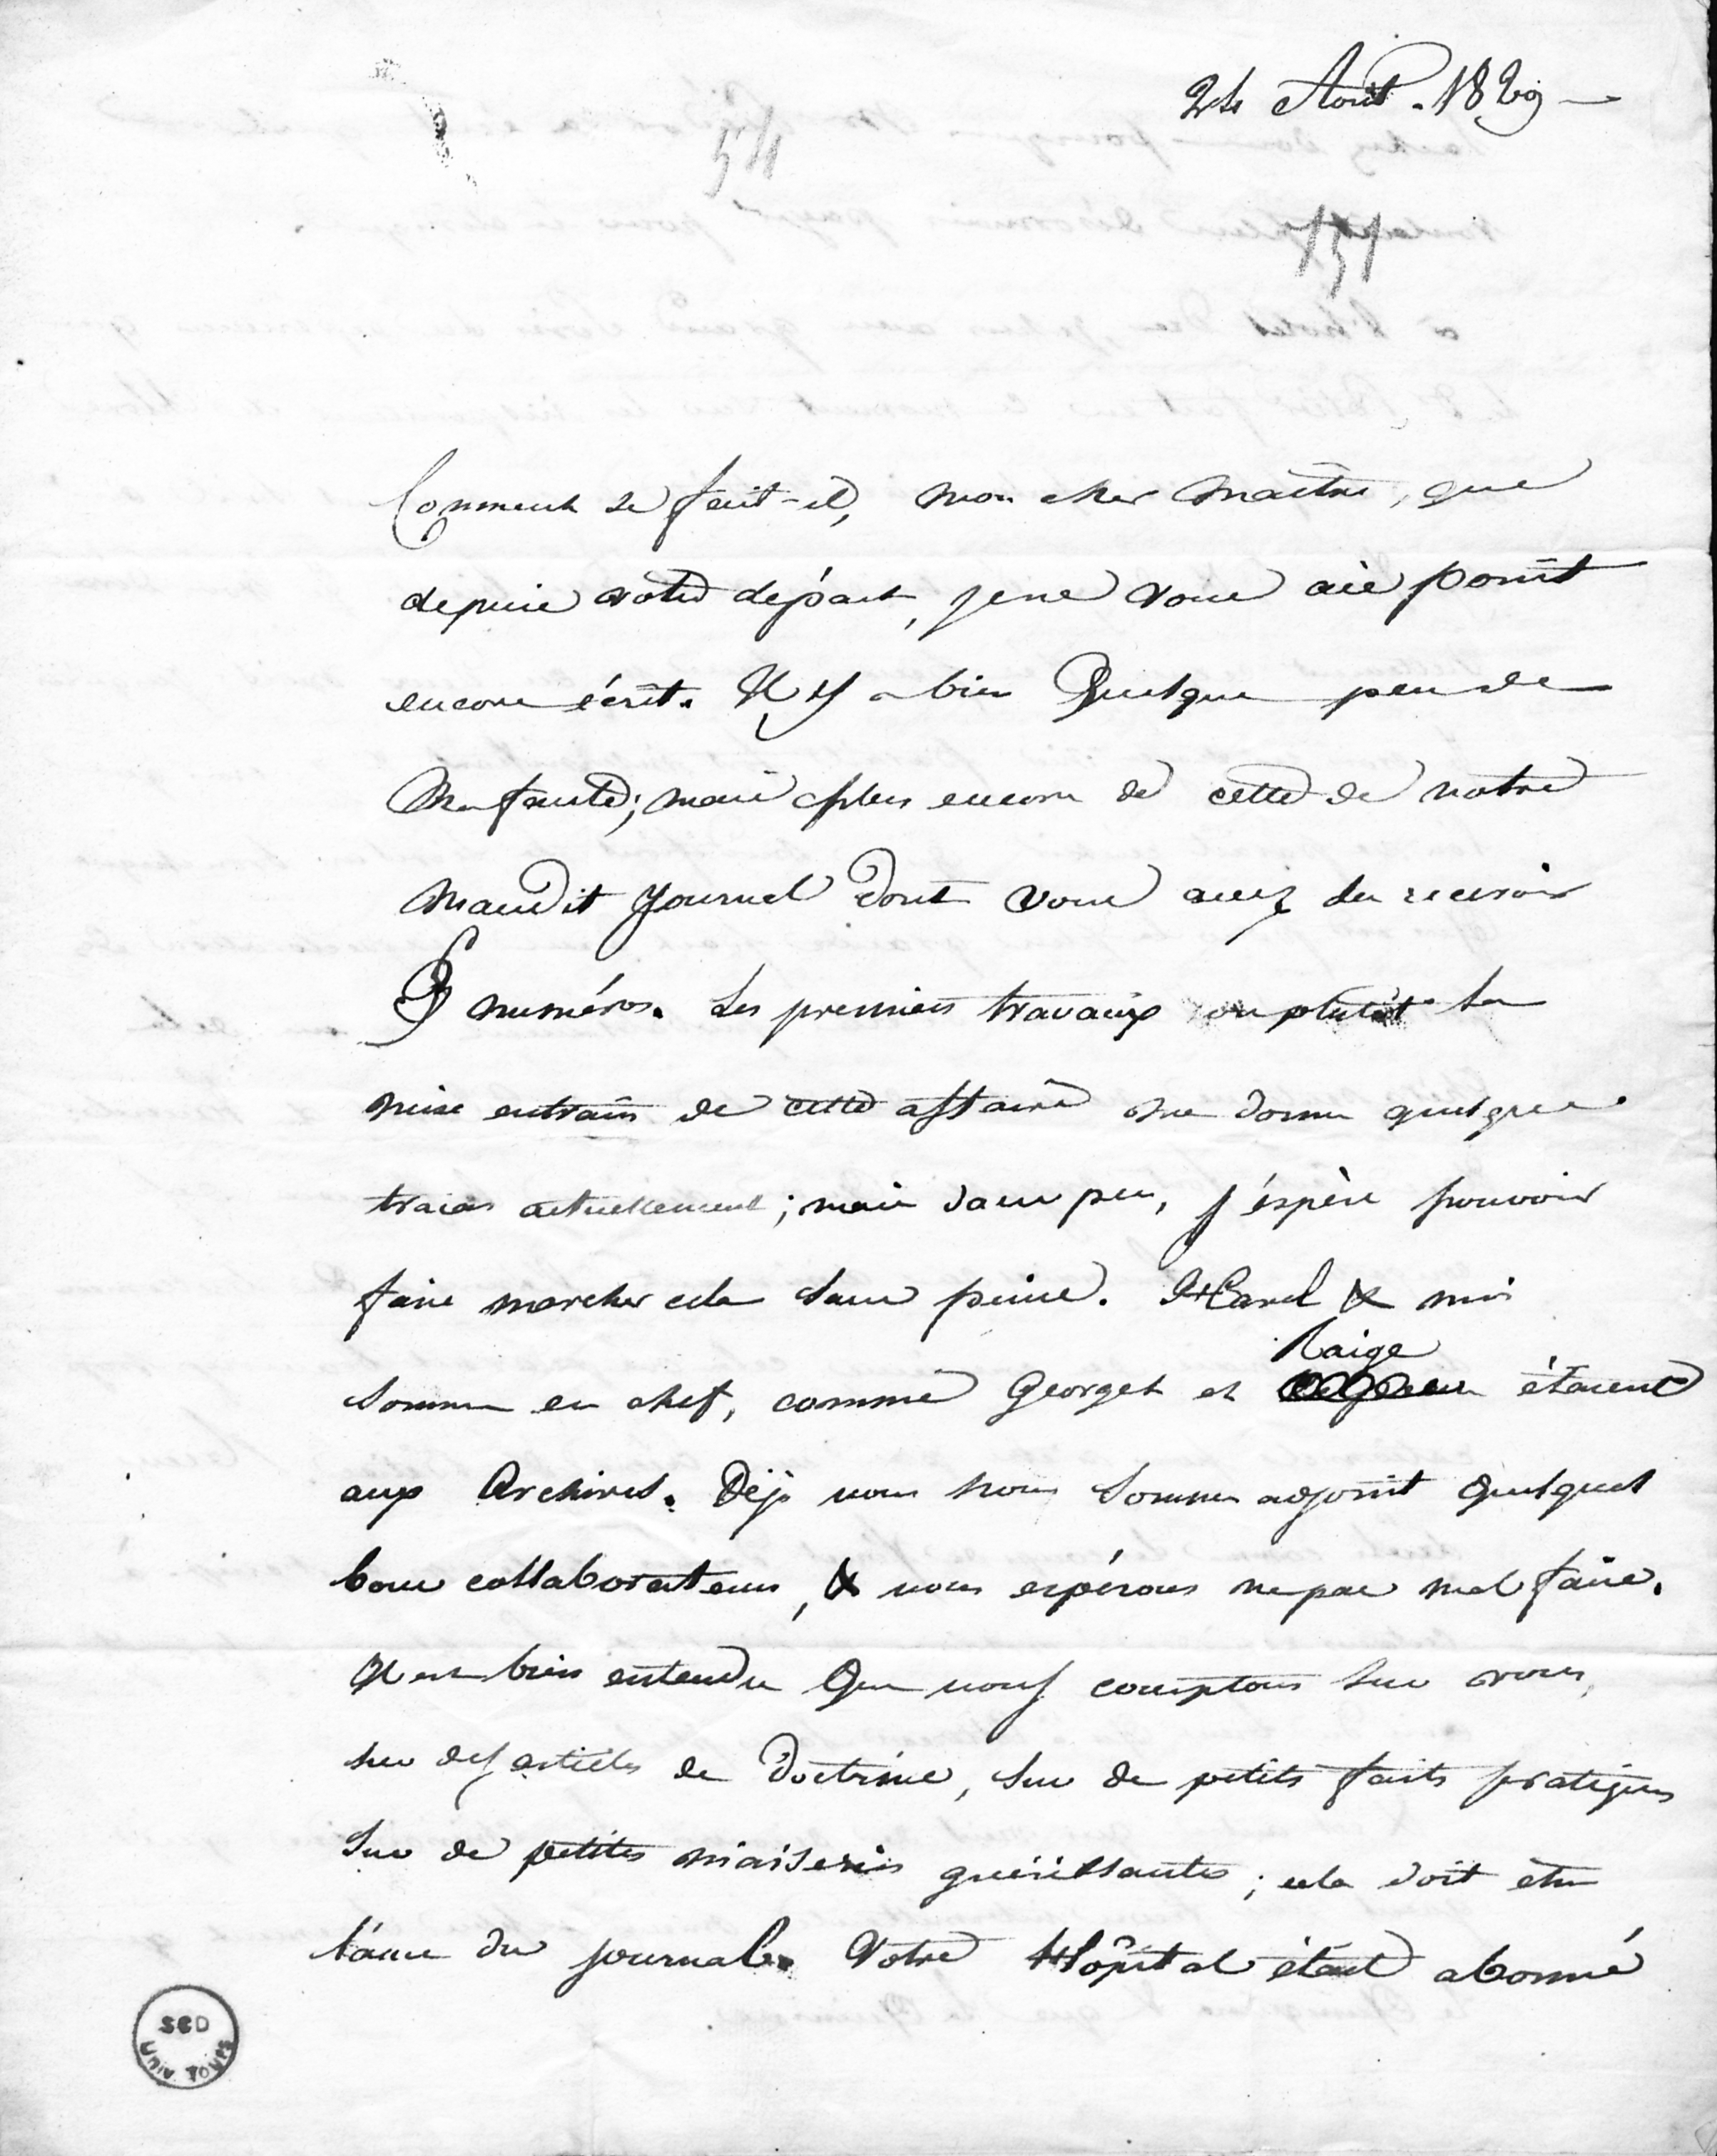 24 Août. 1829
54
151
Comment se fait-il, mon cher maître, que
depuis votre départ, je ne vous aie point
encore écrit. Il y a bien quelque peu de
ma faute; mais plus encore de cette de notre
maudit journal dont vous avez du recevoir
numéros. Les premiers travaux ou plutôt la
mise entrain de cette affaire me donne quelques
tracas actuellement; mais dans peu, j'espère pouvoir
faire marcher cela sans peine. & moi
sommes en chef, comme Georget et Raige étaient
aux Archives. Déjà nous nous sommes adjoint quelques
bons collaborateurs, & nous espérons ne pas mal faire.
Il est bien entendu que nous comptons sur vous,
sur des articles de doctrine, sur de petits faits pratiques
sur de petites niaiseries guérissantes; cela doit être
l'âme du journal. Votre Hôpital était abonné
SCD
UNIV TOURS